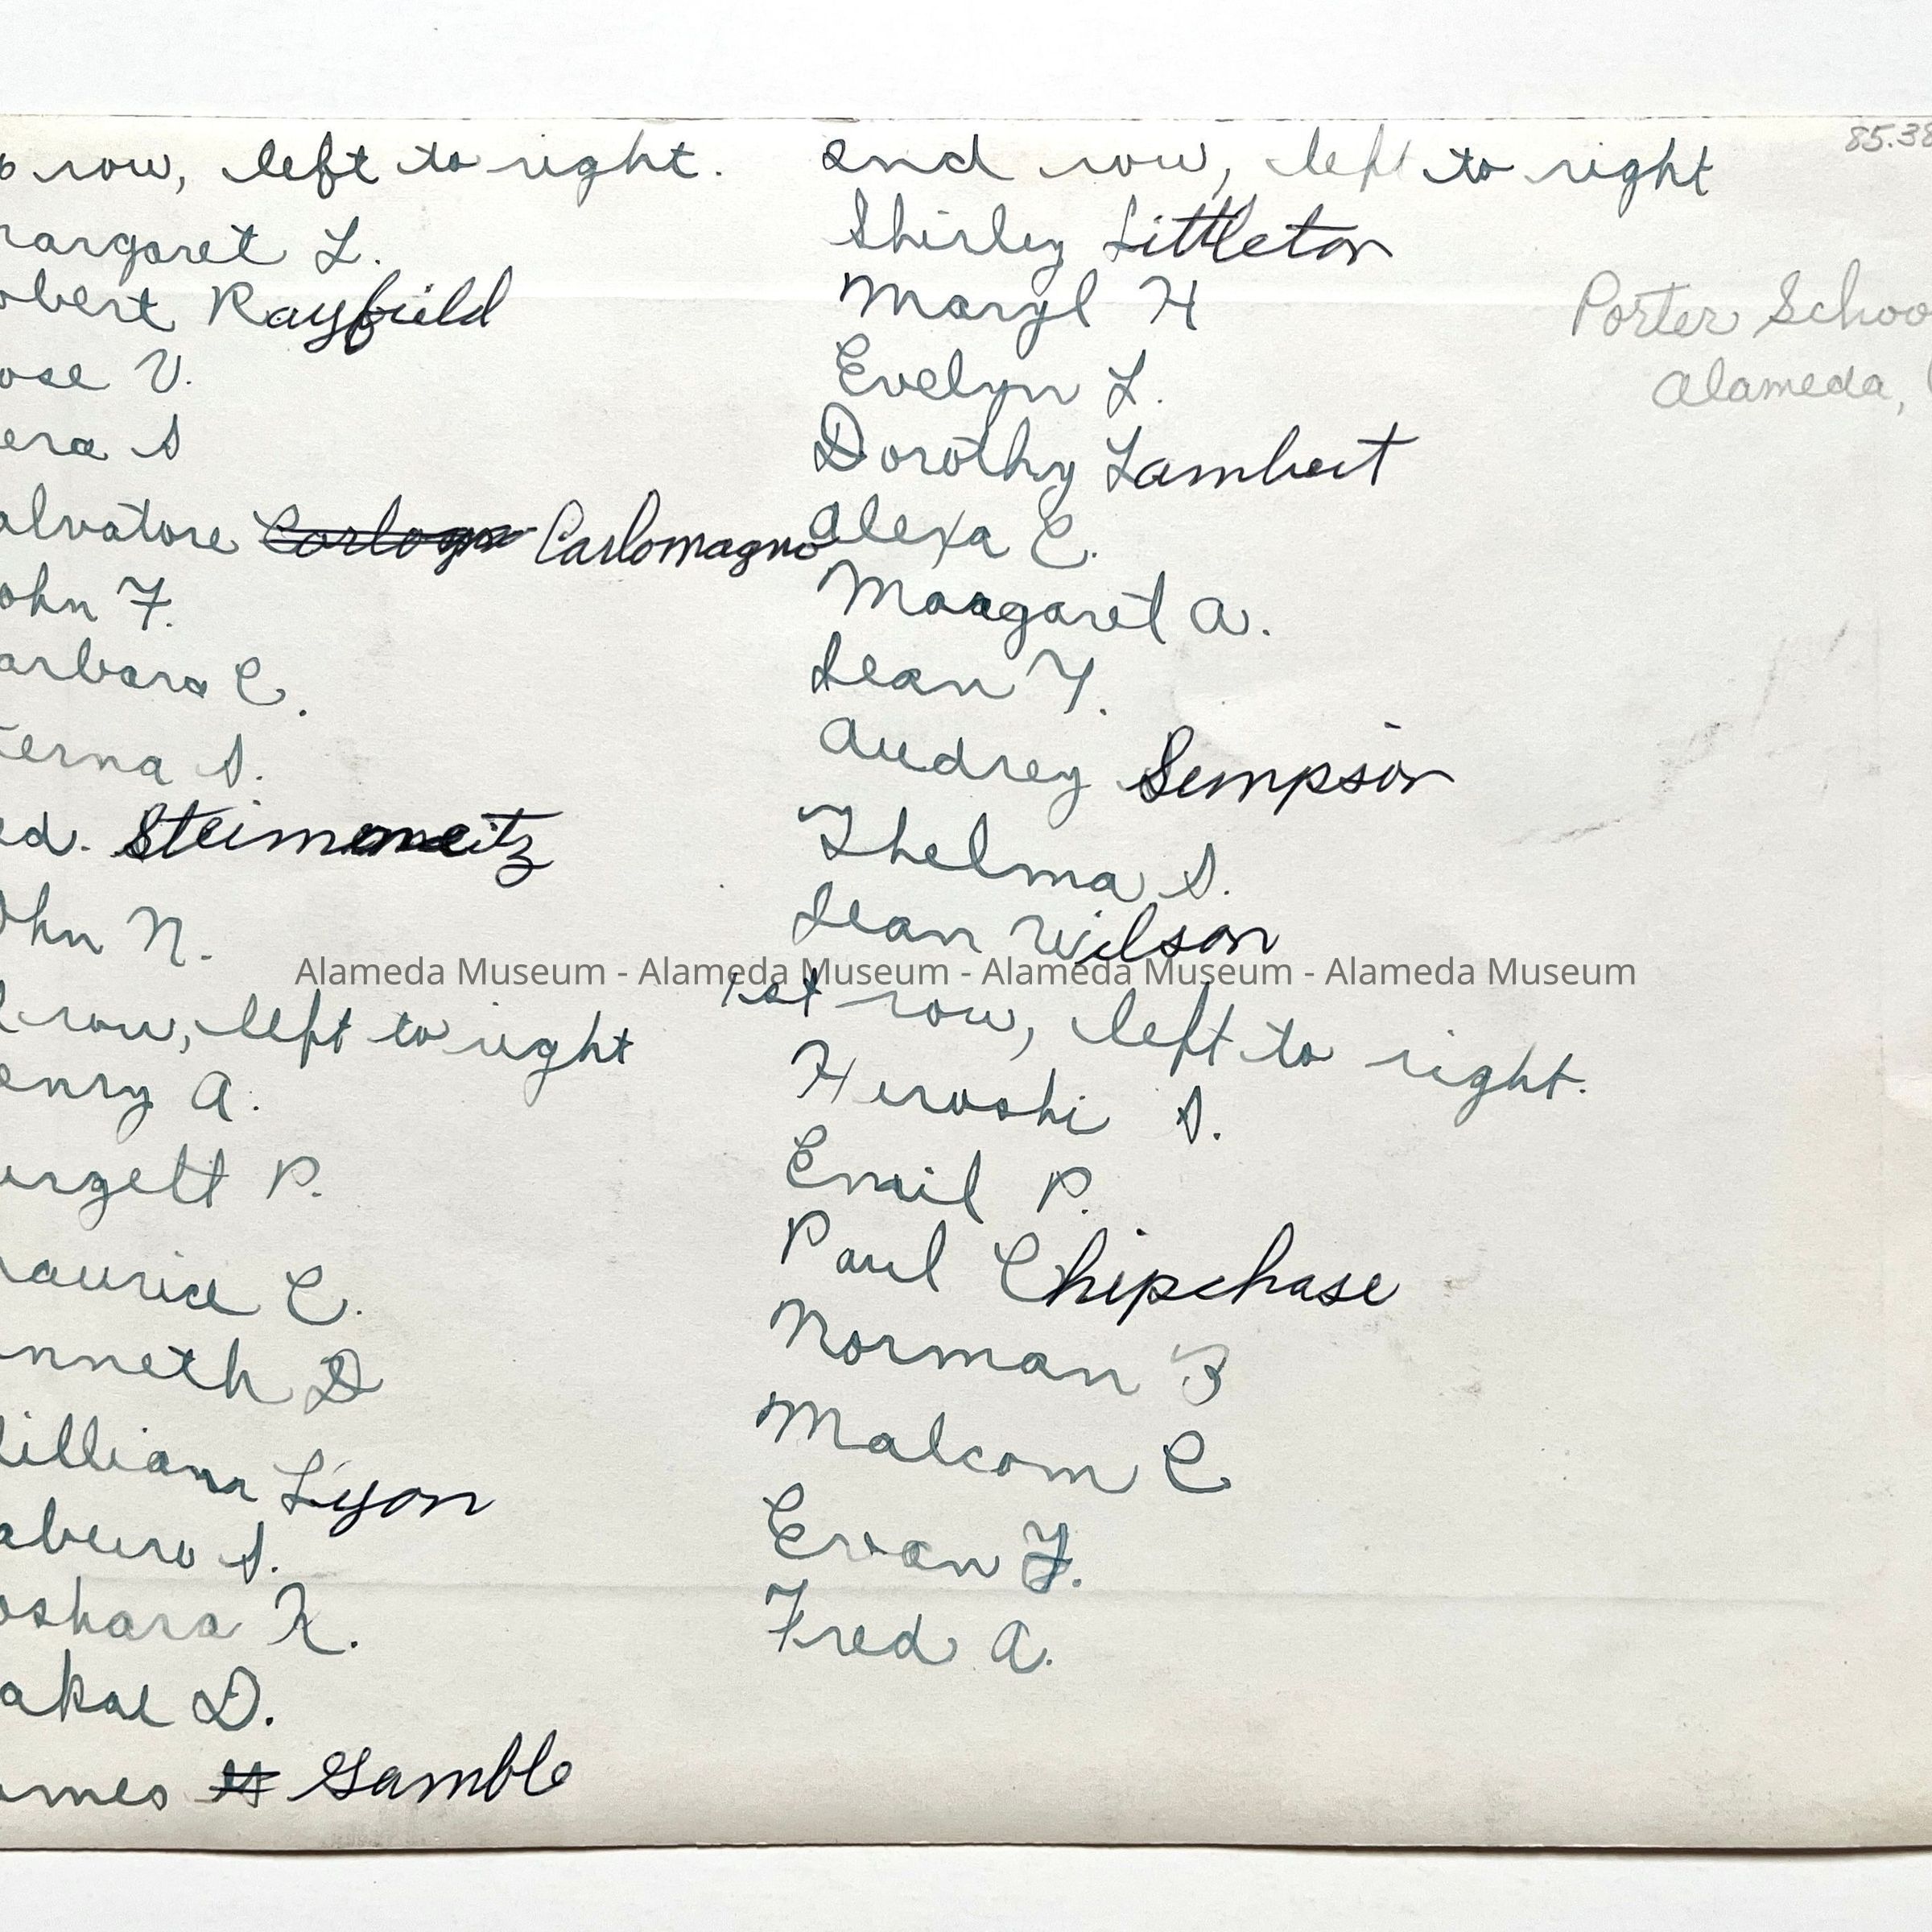 row, left to right.
argaret L.
obert Rayfield
ose V.
era S
alvatore Carlomagno
ohn F.
arbara C.
erna S.
ed. Steinmeitz
ohn N.
row, left to right
enry A.
urgett P.
aurice C.
nneth D
illiam Lyon
aburo S.
oshara K.
akae D.
ames H Gamble
2nd row, left to right
Shirley Littleton
Maryl H
Evelyn L.
Dorothy Lambert
Alexa C.
Margaret A.
Jean Y.
Audrey Sempson
Thelma S.
Jean Wilson
1st row, left to right.
Heroshi S.
Emil P.
Paul Chipchase
Norman B
Malcom C
Evan F.
Fred A.
85.38
Porter Schoo
Alameda,
Alameda Museum - Alameda Museum - Alameda Museum - Alameda Museum